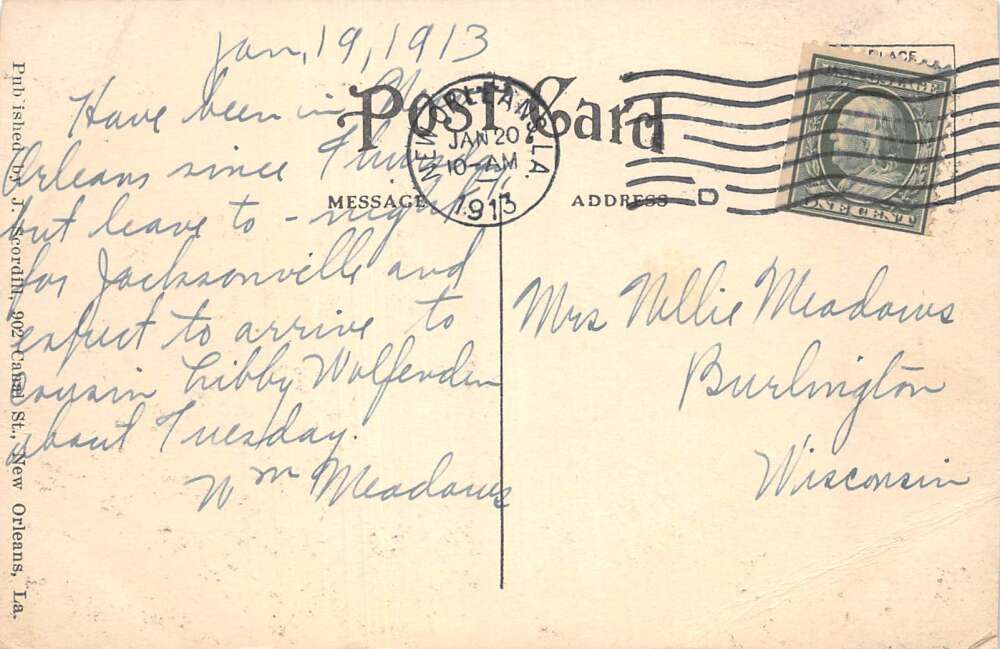 Jan, 19, 1913
Have been in N.
Orleans since Thursday
but leave to-night
for Jacksonville and
expect to arrive to
Cousin Libby Wolfenden
about Tuesday.
Wm Meadows
Post Card
MESSAGE
ADDRESS
NEW ORLEANS, LA.
JAN 20
10-AM
1913
D
PLACE
ONE CENT
Mrs Nellie Meadows
Burlington
Wisconsin
Published by J. Scordill, 902 Canal St., New Orleans, La.